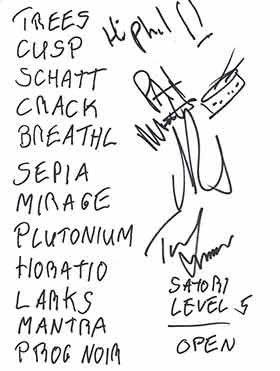 TREES
CUSP
SCHATT
CRACK
BREATHL
SEPIA
MIRAGE
PLUTONIUM
HORATIO
LARKS
MANTRA
PROG NOIR
Hi phil !!
SATORI
LEVEL 5
OPEN